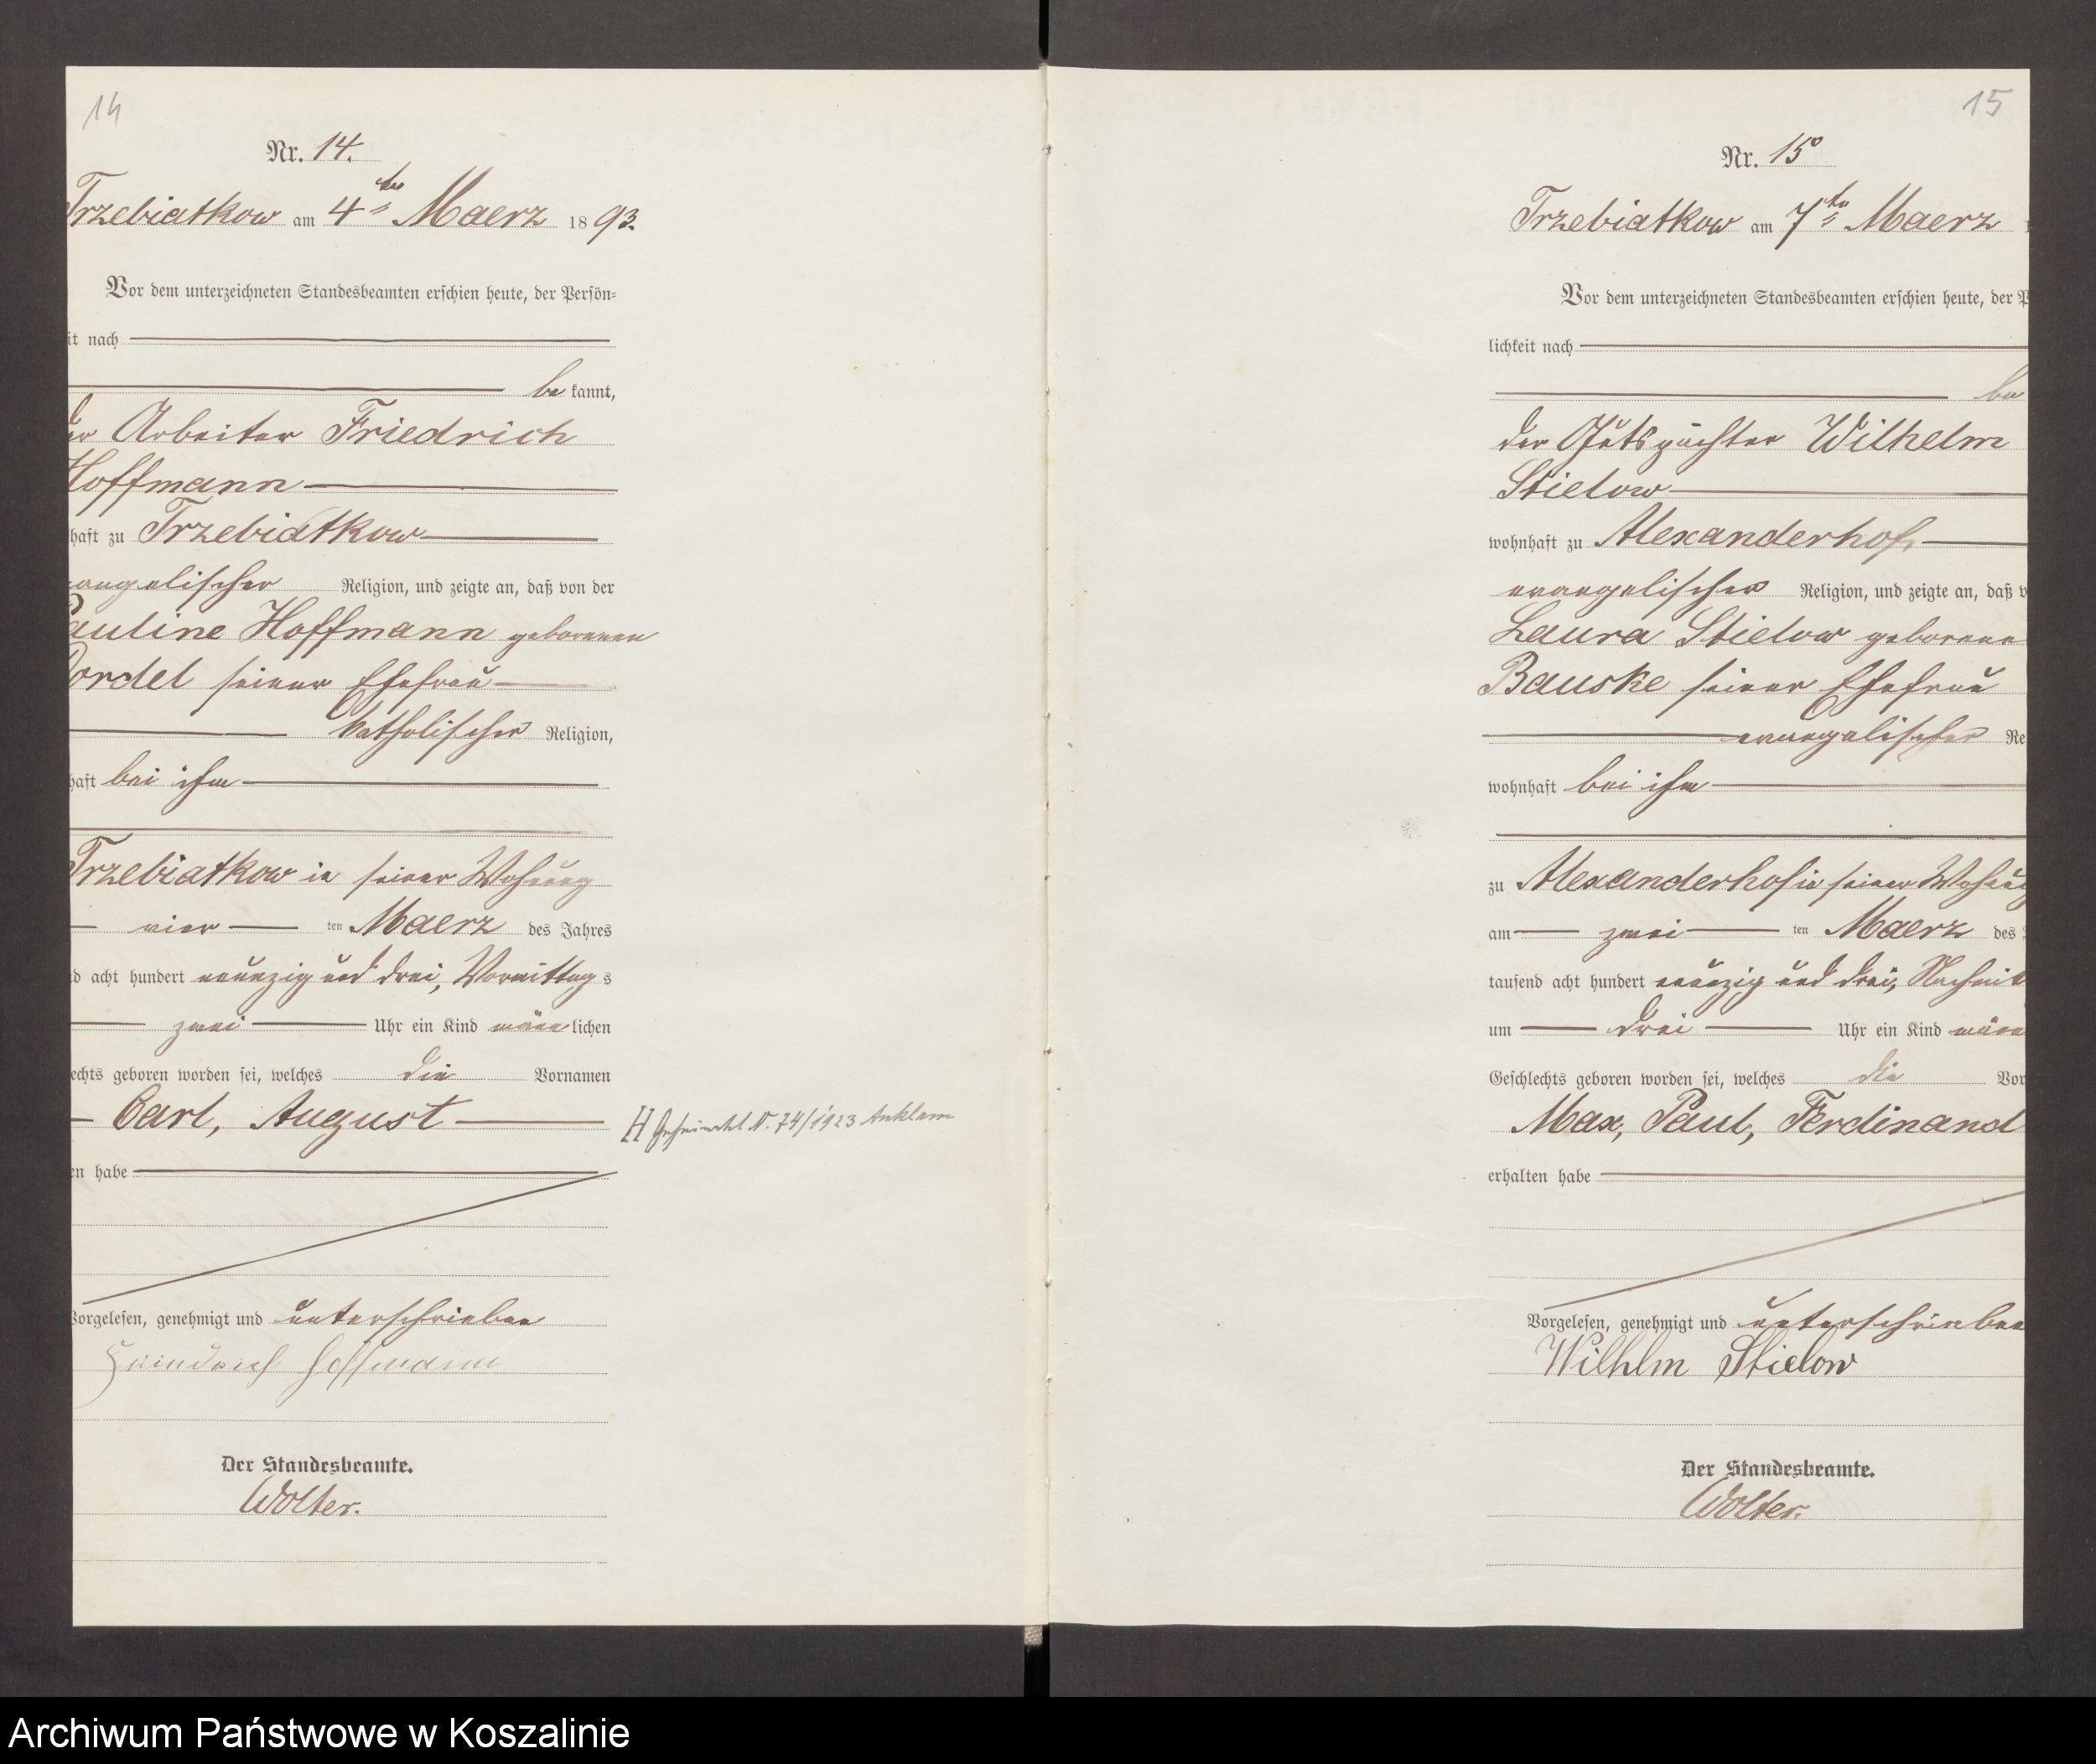 14
Nr. 14.
Trzebiatkow am 4ten Maerz 1893.
Vor dem unterzeichneten Standesbeamten erschien heute, der Persön-
it nach
be kannt,
der Arbeiter Friedrich
Hoffmann
haft zu Trzebiatkow
evangelischer Religion, und zeigte an, daß von der
Pauline Hoffmann geborenen
seiner Ehefrau
katholischer Religion,
haft bei ihm
Trzebiatkow in seiner Wohnung
vier ten Maerz des Jahres
d acht hundert neunzig und drei, Vormittags
zwei Uhr ein Kind männlichen
echts geboren worden sei, welches die Vornamen
Carl, August
H Geheirathet N. 74/1923 Anklam
en habe
Vorgelesen, genehmigt und unterschrieben
Hoffmann
Der Standesbeamte.
Wolter.
15
Nr. 15
Trzebiatkow am 7ten Maerz
Vor dem unterzeichneten Standesbeamten erschien heute, der P
lichkeit nach
be
der Gutspächter Wilhelm
Stielow
wohnhaft zu Alexanderhof,
evangelischer Religion, und zeigte an, daß v
Laura Stielow geborene
Bauske seiner Ehefrau
evangelischer Re
wohnhaft bei ihm
zu Alexanderhof in seiner Wohnung
am zwei ten Maerz des
tausend acht hundert neunzig und drei, Nachmit
um drei Uhr ein Kind männ
Geschlechts geboren worden sei, welches die Vor
Max, Paul, Ferdinand
erhalten habe
Vorgelesen, genehmigt und unterschrieben
Wilhlm Stielow
Der Standesbeamte.
Wolter.
Archiwum Państwowe w Koszalinie